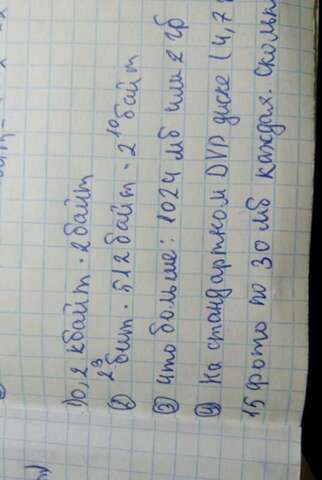 1) 0,2 кбайт · 2 байт
② 2³ бит · 512 байт · 2¹⁰ байт
③ Что больше: 1024 мб или 2 гб
④ На стандартном DVD диске (4,7
15 фото по 30 мб каждая. Сколь